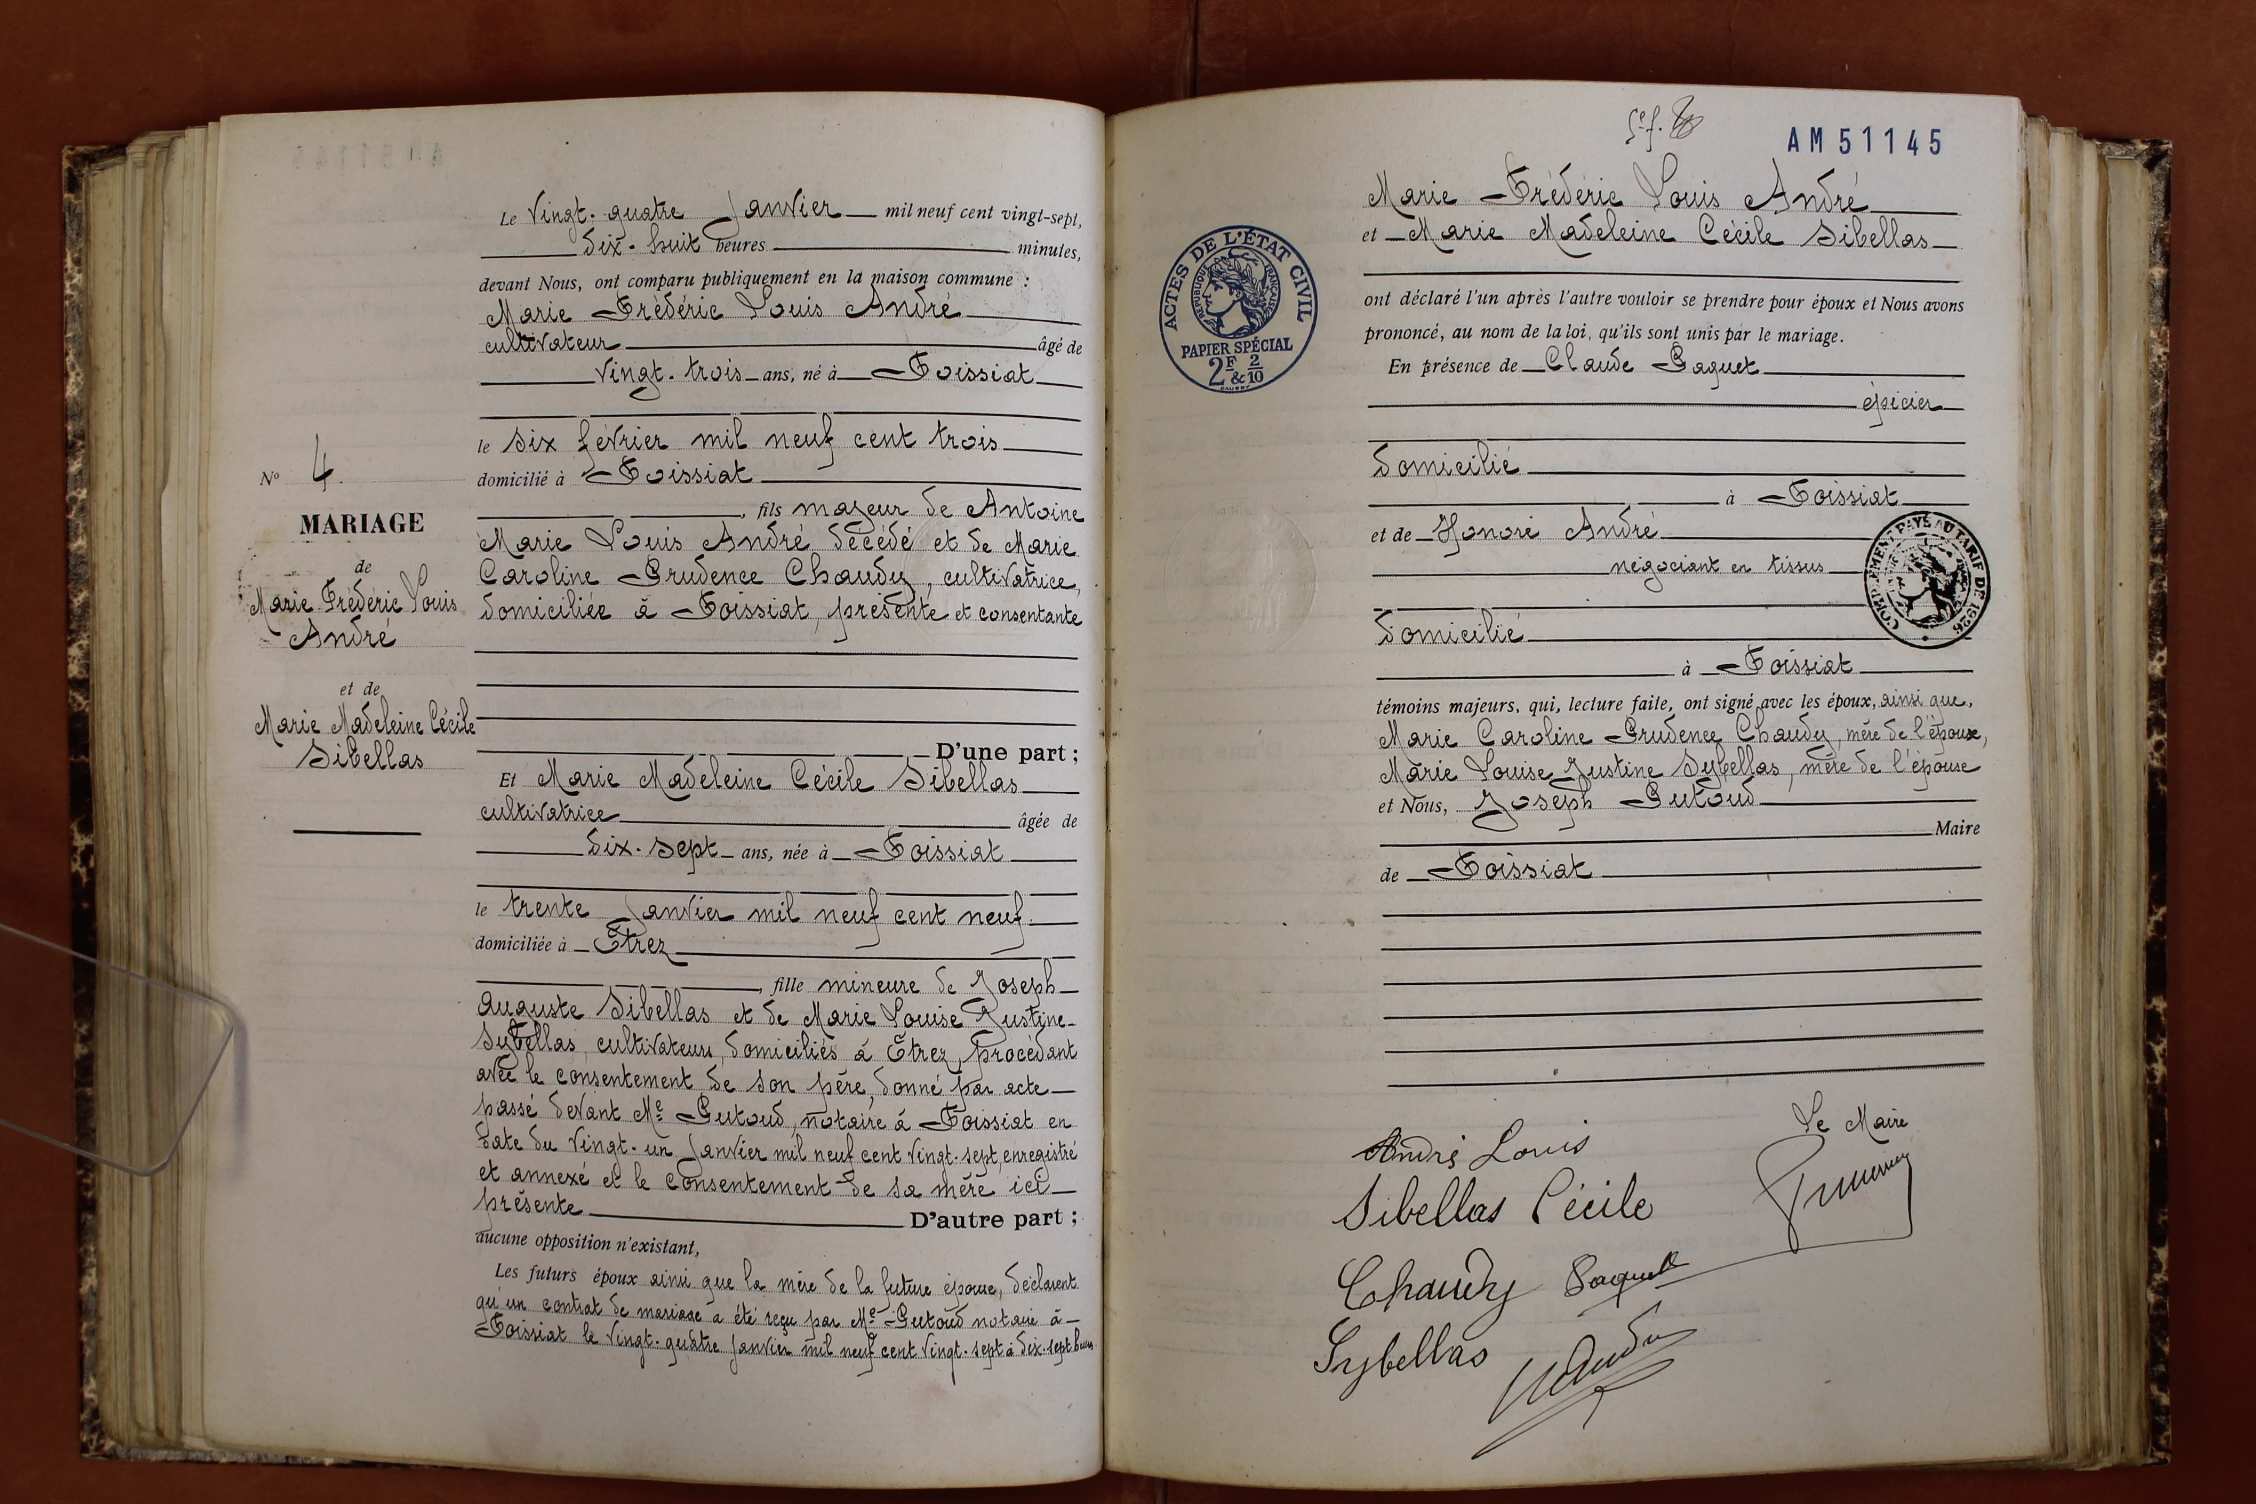 Le Vingt-quatre Janvier mil neuf cent vingt-sept,
dix-huit heures minutes,
devant Nous, ont comparu publiquement en la maison commune :
Marie Frédéric Louis André
cultivateur âgé de
Vingt-trois ans, né à Foissiat
le six février mil neuf cent trois
domicilié à Foissiat
, fils majeur de Antoine
Marie Louis André décédé et de Marie
Caroline Prudence Chaudy, cultivatrice,
domiciliée à Foissiat, présente et consentante
D'une part ;
Et Marie Madeleine Cécile Sibellas
cultivatrice âgée de
dix-sept ans, née à Foissiat
le trente Janvier mil neuf cent neuf
domiciliée à Étrez
, fille mineure de Joseph
Auguste Sibellas et de Marie Louise Justine
Sybellas, cultivateurs, domiciliés à Étrez, procédant
avec le consentement de son père, donné par acte
passé devant Me Putoud, notaire à Foissiat en
date du vingt-un Janvier mil neuf cent vingt-sept, enregistré
et annexé et le consentement de sa mère ici
présente D'autre part ;
aucune opposition n'existant,
Les futurs époux ainsi que la mère de la future épouse, déclarent
qu'un contrat de mariage a été reçu par Me Putoud notaire à
Foissiat le vingt-quatre Janvier mil neuf cent vingt-sept à dix-sept heures
No 4
MARIAGE
de
Marie Frédéric Louis
André
et de
Marie Madeleine Cécile
Sibellas
AM 51145
Marie Frédéric Louis André
et Marie Madeleine Cécile Sibellas
ont déclaré l'un après l'autre vouloir se prendre pour époux et Nous avons
prononcé, au nom de la loi, qu'ils sont unis par le mariage.
En présence de Claude Paquet
épicier
domicilié
à Foissiat
et de Honoré André
négociant en tissus
domicilié
à Foissiat
témoins majeurs, qui, lecture faite, ont signé avec les époux, ainsi que,
Marie Caroline Prudence Chaudy, mère de l'époux,
Marie Louise Justine Sybellas, mère de l'épouse
et Nous, Joseph Putoud
Maire
de Foissiat
ACTES DE L'ÉTAT CIVIL
RÉPUBLIQUE FRANÇAISE
PAPIER SPÉCIAL
2F & 2/10
COMPLÉMENT PAYÉ AU TARIF DE 1926
Le Maire
André Louis
Sibellas Cécile
Chaudy Paquet
Sybellas